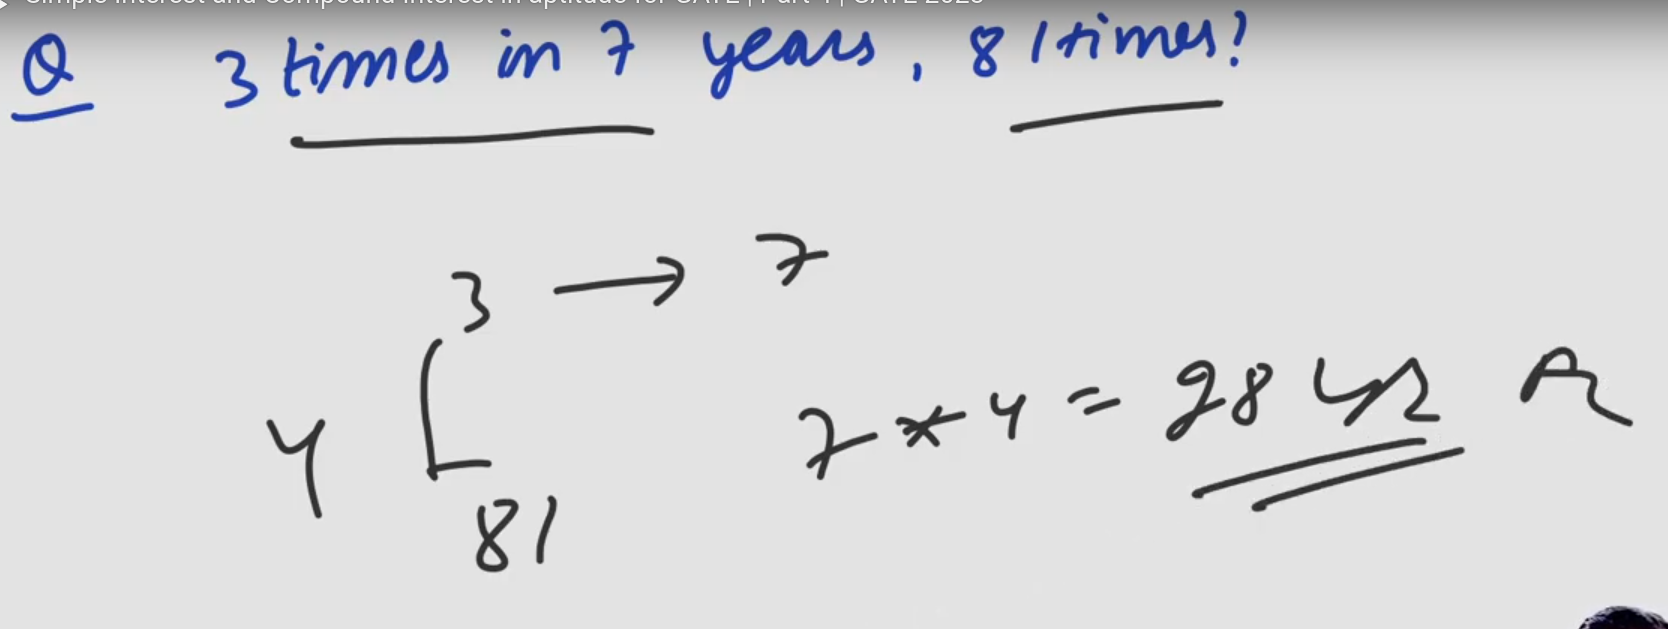 Simple Interest and Compound Interest in aptitude for GATE | Part 4 | GATE 2023
Q 3 times in 7 years, 81 times?
3 → 7
4
7 * 4 = 28 yrs
81